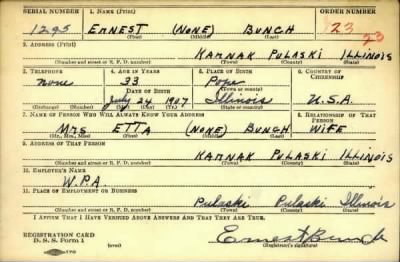 SERIAL NUMBER 1. NAME (Print) ORDER NUMBER
1295 ERNEST (NONE) BUNCH 23 23
(First) (Middle) (Last)
2. ADDRESS (Print)
KARNAK PULASKI ILLINOIS
(Number and street or R. F. D. number) (Town) (County) (State)
3. TELEPHONE 4. AGE IN YEARS 5. PLACE OF BIRTH 6. COUNTRY OF CITIZENSHIP
none 33 Pope
DATE OF BIRTH (Town or county)
July 24 1907 Illinois U.S.A.
(Mo.) (Day) (Yr.) (State or country)
7. NAME OF PERSON WHO WILL ALWAYS KNOW YOUR ADDRESS 8. RELATIONSHIP OF THAT PERSON
MRS ETTA (NONE) BUNCH WIFE
(Mr., Mrs., Miss) (First) (Middle) (Last)
9. ADDRESS OF THAT PERSON
KARNAK PULASKI ILLINOIS
(Number and street or R. F. D. number) (Town) (County) (State)
10. EMPLOYER'S NAME
W.P.A.
11. PLACE OF EMPLOYMENT OR BUSINESS
Pulaski Pulaski Illinois
(Number and street or R. F. D. number) (Town) (County) (State)
I AFFIRM THAT I HAVE VERIFIED ABOVE ANSWERS AND THAT THEY ARE TRUE.
REGISTRATION CARD
D. S. S. Form 1 Ernest Bunch
(over) (Registrant's signature)